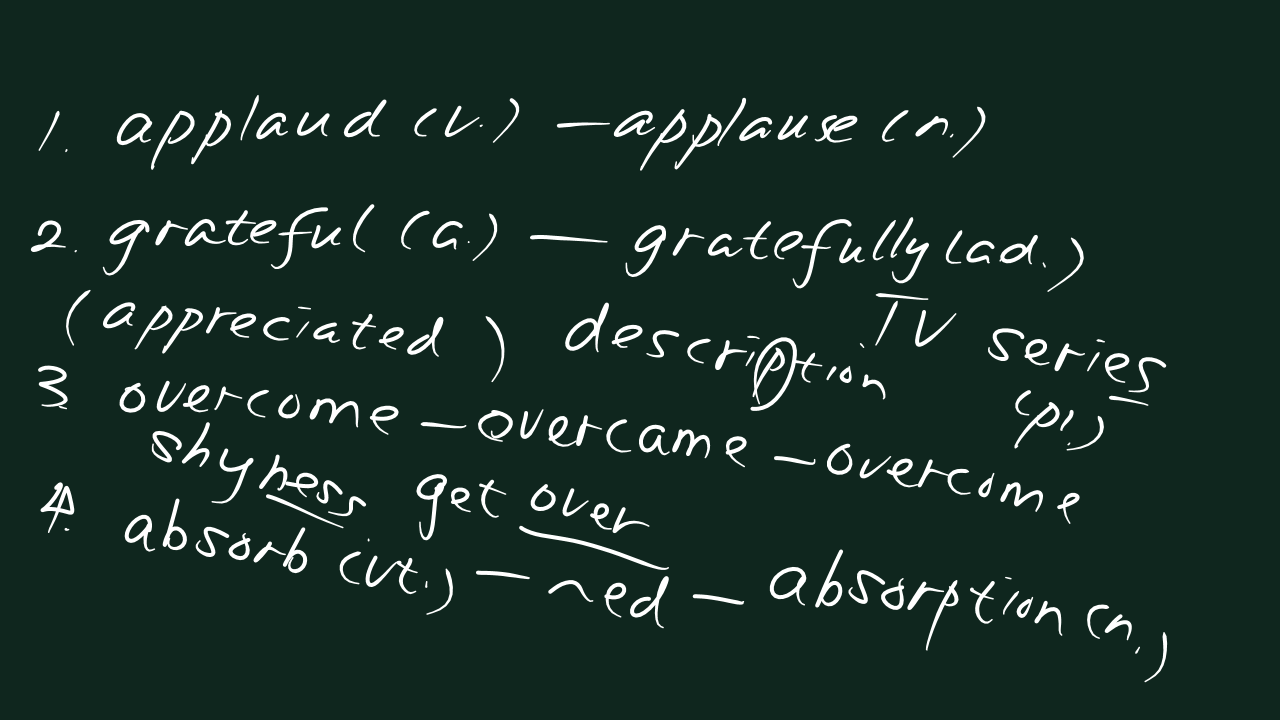 1. applaud (v.) — applause (n.)
2. grateful (a.) — gratefully (ad.)
(appreciated) description TV series
(pl.)
3 overcome — overcame — overcome
shyness get over
4. absorb (vt.) — ~ed — absorption (n.)